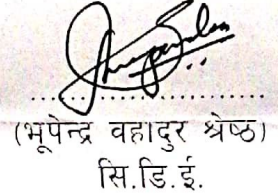 (भूपेन्द्र वहादुर श्रेष्ठ)
सि.डि.ई.